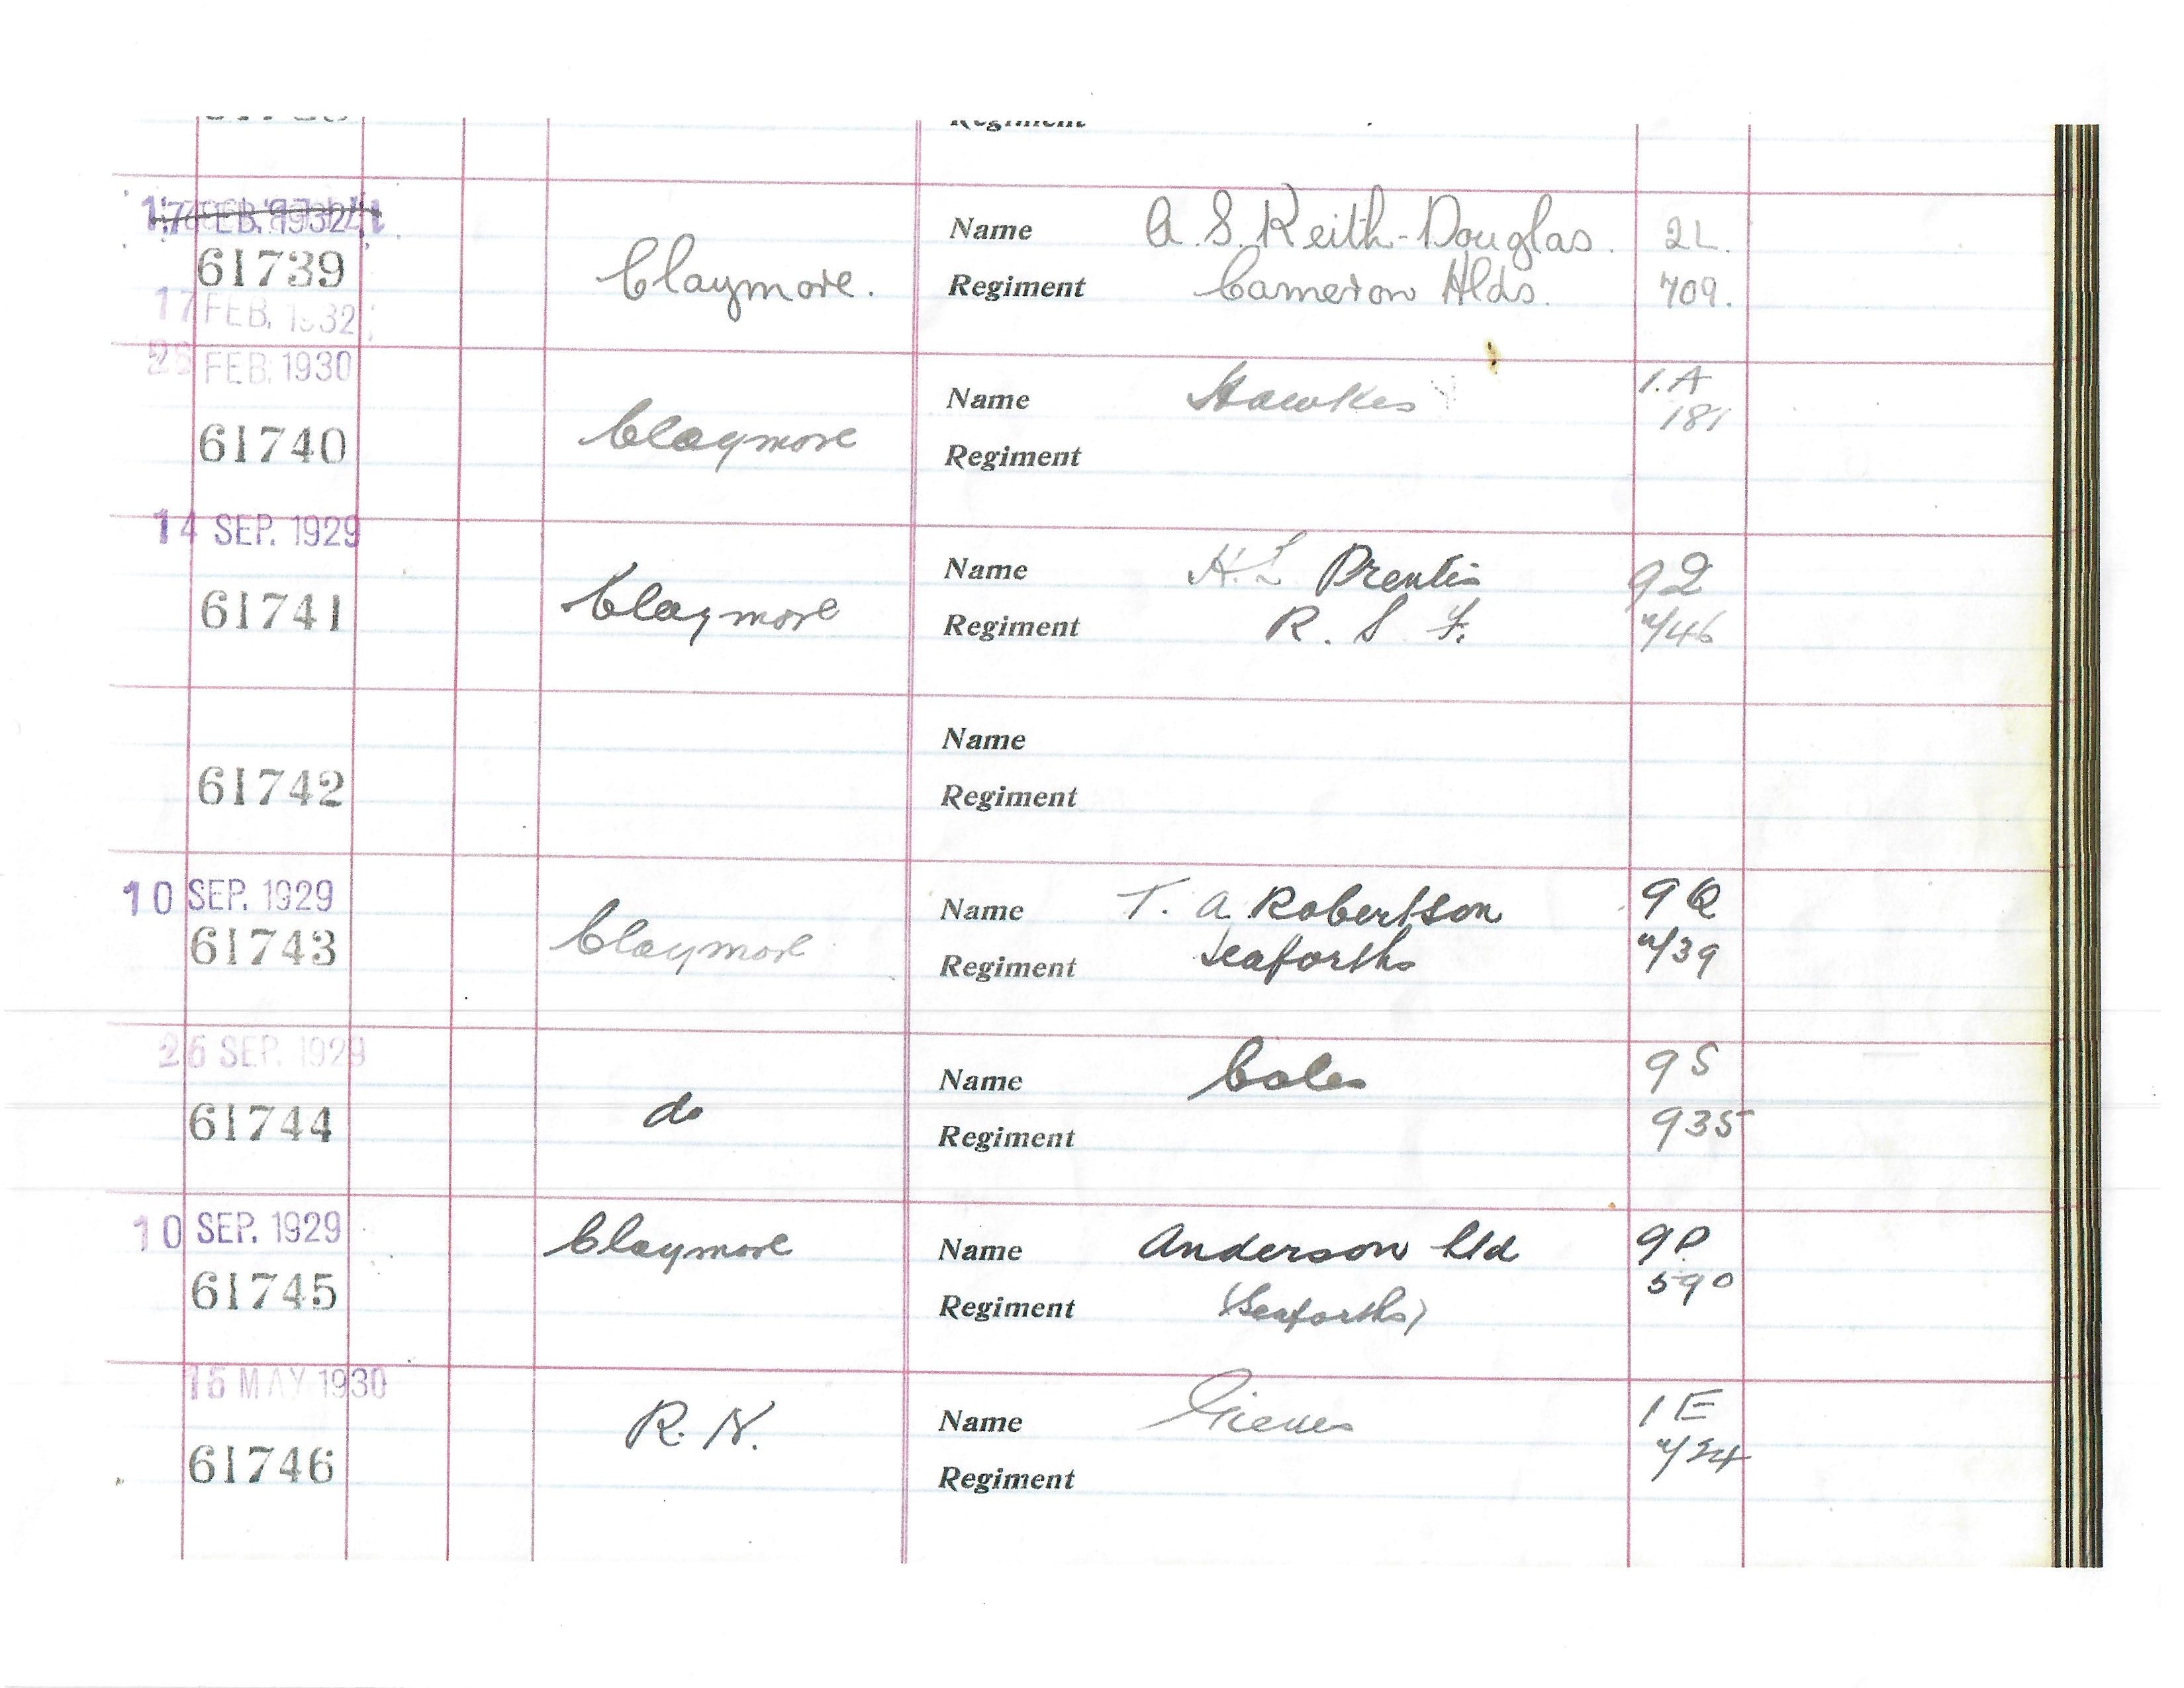 Regiment
17 FEB. 1932
61739
17 FEB. 1932
Claymore.
Name A. S. Keith-Douglas. 2L.
Regiment Cameron Hlds. 709.
FEB. 1930
61740
Claymore
Name Hawkes 1.A
181
Regiment
14 SEP. 1929
61741
Claymore
Name H.L Prentis 9Q
Regiment R. S. F. n/46
61742
Name
Regiment
10 SEP. 1929
61743
Claymore
Name T. A. Robertson 9Q
Regiment Seaforths n/39
26 SEP. 1929
61744
do
Name Coles 9S
Regiment 935
10 SEP. 1929
61745
Claymore
Name Anderson Ltd 9P
590
Regiment (Seaforths)
15 MAY 1930
61746
R. N.
Name Gieves 1E
n/24
Regiment